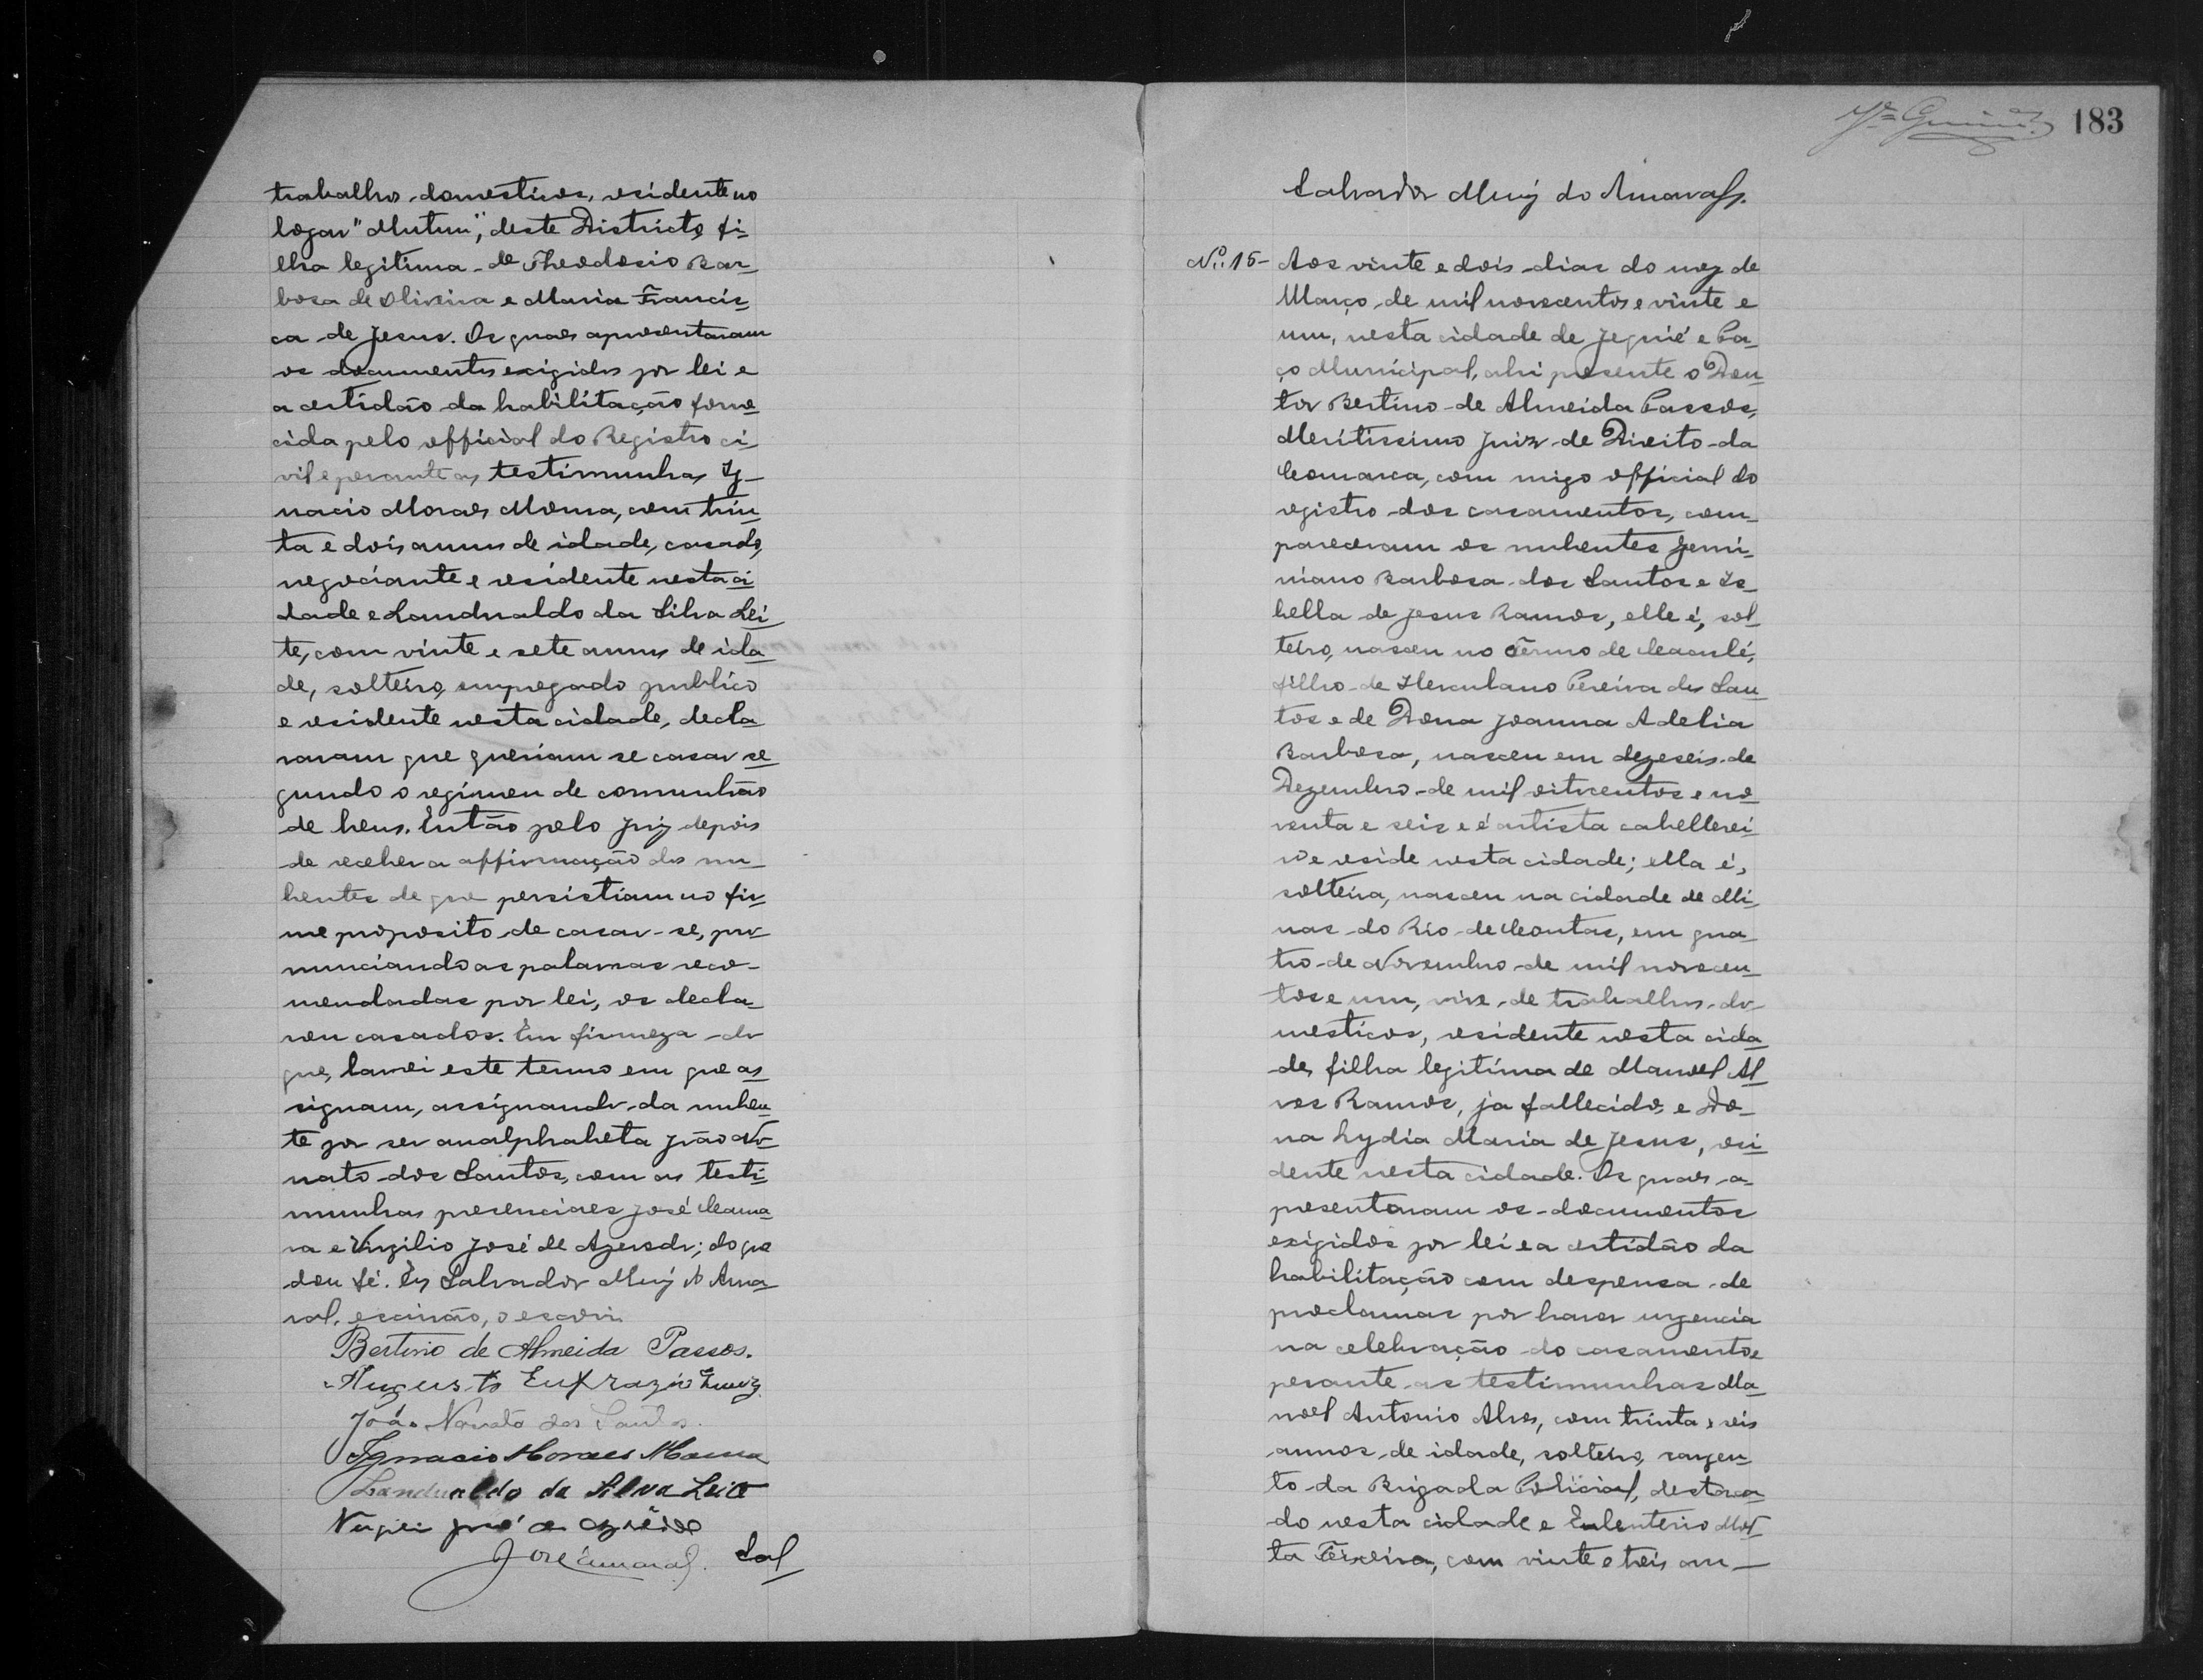 trabalhos domesticos, residente no
logar "Mutum", deste Districto, fi-
lha legitima de Theodosio Bar-
bosa de Oliveira e Maria Francis-
ca de Jesus. Os quaes apresentaram
os documentos exigidos por lei e
a certidão da habilitação forne-
cida pelo official do Registro ci-
vil e perante as testimunhas Ig-
nacio Moraes Moura, com trin-
ta e dois annos de idade, casado,
negociante e residente nesta ci-
dade e Landualdo da Silva Lei-
te, com vinte e sete annos de ida-
de, solteiro, empregado publico
e residente nesta cidade, decla-
raram que queriam se casar se-
gundo o regimen de comunhão
de bens. Então pelo Juiz depois
de receber a affirmação dos nu-
bentes de que persistiam no fir-
me proposito de casar-se, pro-
nunciando as palavras reco-
mendadas por lei, os decla-
rou casados. Em firmeza do
que, lavrei este termo em que as-
signam, assignando da nuben-
te por ser analphabeta João No-
nato dos Santos, com as testi-
munhas presenciaes José Cama-
ra e Virgilio José de Azevedo; do que
dou fé. Eu Salvador Muiz do Ama-
ral, escrivão, o escrevi.
Bertino de Almeida Passos.
Augusto Eufrazio
João Nonato dos Santos.
Ignacio Moraes Moura
Landualdo da Silva Leite
José de Azevêdo
José Camara. Sal
183
Salvador Muiz do Amaral.
Nº. 15- Aos vinte e dois dias do mez de
Março de mil novecentos e vinte e
um, nesta cidade de Jequié e Pa-
ço Municipal, ahi presente o Dou-
tor Bertino de Almeida Passos,
Meritissimo Juiz de Direito da
Comarca, com migo official do
registro dos casamentos, com-
pareceram os nubentes Jemi-
niano Barbosa dos Santos e Is-
bella de Jesus Ramos, elle é, sol-
teiro, nasceu no Termo de Maculé,
filho de Herculano Pereira dos San-
tos e de Dona Joanna Adelia
Barbosa, nasceu em dezeseis de
Dezembro de mil oitocentos e no-
venta e seis e é artista cabellerei-
ro e reside nesta cidade; ella é,
solteira, nasceu na cidade de Mi-
nas do Rio de Contas, em qua-
tro de Novembro de mil novecen-
tos e um, vive de trabalhos do-
mesticos, residente nesta cida-
de, filha legitima de Manoel Al-
ves Ramos, ja fallecido, e Do-
na Lydia Maria de Jesus, resi-
dente nesta cidade. Os quaes a-
presentaram os documentos
exigidos por lei e a certidão da
habilitação com despensa de
proclamas por haver urgencia
na celebração do casamento e
perante as testimunhas Ma-
noel Antonio Alves, com trinta e seis
annos de idade, solteiro, sargen-
to da Brigada Policial, destaca-
do nesta cidade e Eulenterio Mot-
ta Teixeira, com vinte e tres an-